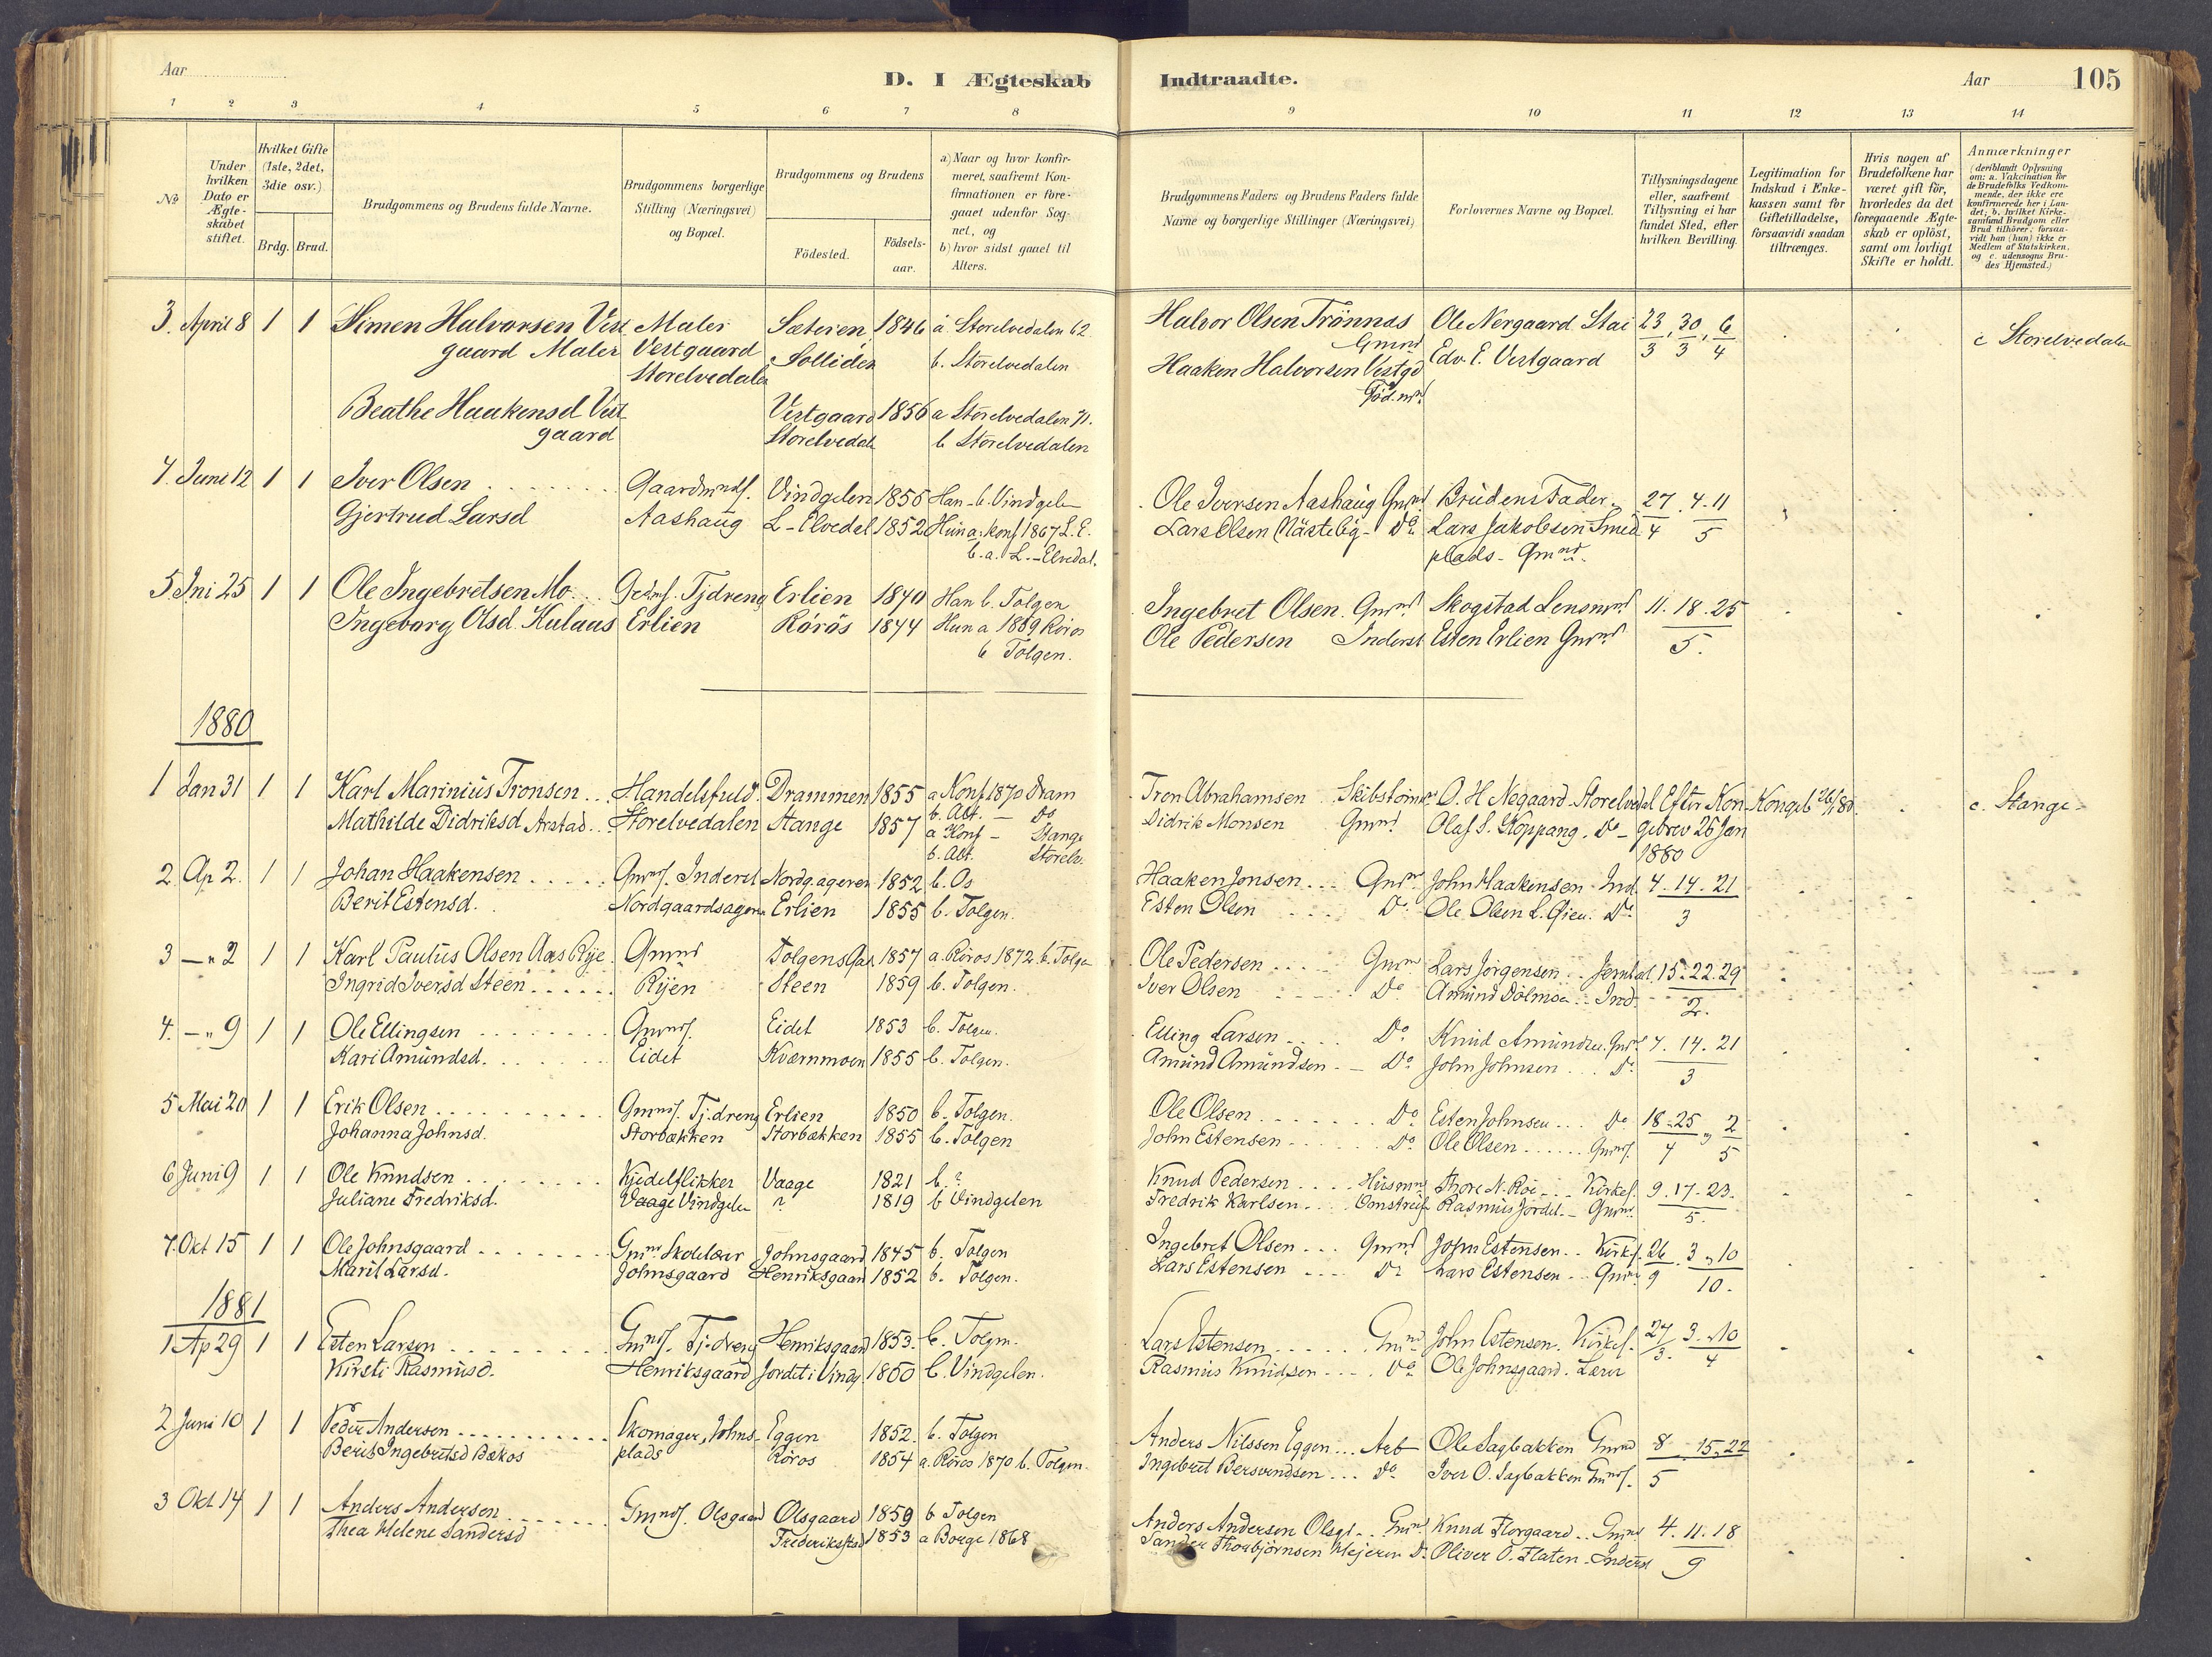 Aar
D. I Ægteskab
Indtraadte.
Aar
105
1 2 3 4 5 6 7 8 9 10 11 12 13 14
№
Under hvilken Dato er Ægteskabet stiftet.
Hvilket Gifte (1ste, 2det, 3die osv.)
Brdg. Brud.
Brudgommens og Brudens fulde Navne.
Brudgommens borgerlige Stilling (Næringsvei) og Bopæl.
Brudgommens og Brudens
Födested.
Födselsaar.
a) Naar og hvor konfirmeret, saafremt Konfirmationen er foregaaet udenfor Sognet, og b) hvor sidst gaaet til Alters.
Brudgommens Faders og Brudens Faders fulde Navne og borgerlige Stillinger (Næringsvei)
Forlovernes Navne og Bopæl.
Tillysningsdagene eller, saafremt Tillysning ei har fundet Sted, efter hvilken Bevilling.
Legitimation for Indskud i Enkekassen samt for Giftetilladelse, forsaavidt saadan tiltrænges.
Hvis nogen af Brudefolkene har været gift för, hvorledes da det foregaaende Ægteskab er oplöst, samt om lovligt Skifte er holdt.
Anmærkninger (deriblandt Oplysning om: a. Vakcination for de Brudefolks Vedkommende, der ikke ere konfirmerede her i Landet; b. hvilket Kirkesamfund Brudgom eller Brud tilhörer, forsaavidt han (hun) ikke er Medlem af Statskirken, og c. udensogns Brudes Hjemsted.)
3. April 8 1 1 Simen Halvorsen Vest Maler Sæteren, 1846 a. Storelvedalen 62 Halvor Olsen Trönnæs Ole Nergaard Stai 23/3, 30/3, 6/4 c Storelvedalen
gaard Maler Vestgaard Solliden b. Storelvedalen Gmnd Edv. E. Vestgaard
Storelvedalen Haaken Halvorsen Vestgd
Beathe Haakensd Vest Vestgaard 1856 a Storelvedalen 71.
gaard Storelvedal b Storelvedalen
4. Juni 12 1 1 Iver Olsen Gaardmnds. Vindgelen 1856 Han b. Vindgelen Ole Iversen Aashaug Gmnd Brudens Fader 27/4 . 4.11/5
Gjertrud Larsd Aashaug L-Elvedal 1852 Hun a. konf 1867 L. E. Lars Olsen Do Lars Jakobsen Smed
b. a. L.-Elvedal. plads Gmnd
5. Jni 25 1 1 Ole Ingebretsen Mo Tjdreng Erlien 1840 Han b. Tolgen Ingebret Olsen Gmnd Skogstad Lensmnd 11. 18. 25/5.
Ingeborg Olsd. Kulaas Erlien Röros 1844 Hun a 1859 Röros Ole Pedersen Inderst Esten Erlien Gmnd
b Tolgen.
1880
1 Jan 31 1 1 Karl Marinius Tronsen Handelsfuld. Drammen 1855 a Konf 1870 Dram Tron Abrahamsen O. H Negaard Storelvedal Efter Kon Kongeb 26/1 80. c. Stange
Mathilde Didriksd Arstad Storelvedalen Stange 1857 b. Alt. Do Didrik Monsen Gmnd Olaf S. Koppang Do gebrev 26 Jan 1880
a Konf Stange
b. Alt. Storelv.
2. Ap 2. 1 1 Johan Haakensen Gmds. Inderst Nordg.ageren 1852 b. Os Haaken Jonsen Gmnd John Haakensen Ind. 7. 14. 21/3
Berit Estensd. Nordgaardsageren Erlien 1855 b. Tolgen. Esten Olsen Do Ole Olsen Do
3 — „ 2 1 1 Karl Paulus Olsen Aas Rye Gmnd Tolgens 1857 a. Röros 1872. b. Tolgen Ole Pedersen Gmnd Lars Jörgensen 15. 22. 29/2.
Ingrid Iversd Steen Ryen Steen 1859 b. Tolgen. Iver Olsen Do Amund Dölmoe Ind.
4. — „ 9 1 1 Ole Ellingsen Gmnds. Eidet 1853 b. Tolgen. Elling Larsen Do Knud Amundsen Gmd 7. 14. 21/3
Kari Amundsd. Eidet Kværnmoen 1855 b. Tolgen. Amund Amundsen Do John Johnsen Do
5 Mai 20 1 1 Erik Olsen Gmnds. Tj.dreng Erlien 1850 b. Tolgen. Ole Olsen Do Esten Johnsen Do 18.25/4 „ 2/5
Johanna Johnsd. Storbækken Storbækken 1855 b. Tolgen John Estensen Do Ole Olsen Gmnds.
6 Juni 9 1 1 Ole Knudsen Kjedelflikker Vaage 1821 b. ? Knud Pedersen Husmnd Thore N. Röe Kirkes. 9. 17. 23./5.
Juliane Fredriksd. Vaage Vindgelen ? 1819 b Vindgelen Fredrik Karlsen Omstreif Rasmus Jordet Gmnd.
7. Okt 15 1 1 Ole Johnsgaard Gmnd Skolelær Johnsgaard 1845 b. Tolgen Ingebret Olsen Gmnd John Estensen Kirks. 26/9. 3 „ 10/10.
Marit Larsd. Johnsgaard Henriksgaard 1852 b. Tolgen. Lars Estensen Do Lars Estensen Gmnd
1881
1. Ap 29 1 1 Esten Larsen Gmnds. Tj-dreng Henriksgaard 1853. b. Tolgen. Lars Estensen Gmnd John Estensen Kirkes. 27/3. 3. „ 10/4
Kirsti Rasmusd. Henriksgaard Jordet i Vindg. 1860 b. Vindgelen. Rasmus Knudsen Do Ole Johnsgaard. Lærer
2 Juni 10 1 1 Peder Andersen Skomager, Johns- Eggen 1852. b. Tolgen Anders Nilssen Eggen Arb Ole Sagbakken Gmnd 8. 15. 22/5
Berit Ingebretsd Bækos plads Röros 1854 a. Röros 1870 b. Tolgen. Ingebret Bersvendsen Do Iver O. Sagbakken Gmnds.
3 Okt 14 1 1 Anders Andersen Gmnds. Olsgaard Olsgaard 1859 b Tolgen Anders Andersen Olsgd Gmnd Knud Florgaard Gmnd 4. 11. 18/9
Thea Helene Sandersd Frederikstad 1853 a Borge 1868 Sander Thorbjörnsen Mejerer Do Oliver O. Flaten Inderst